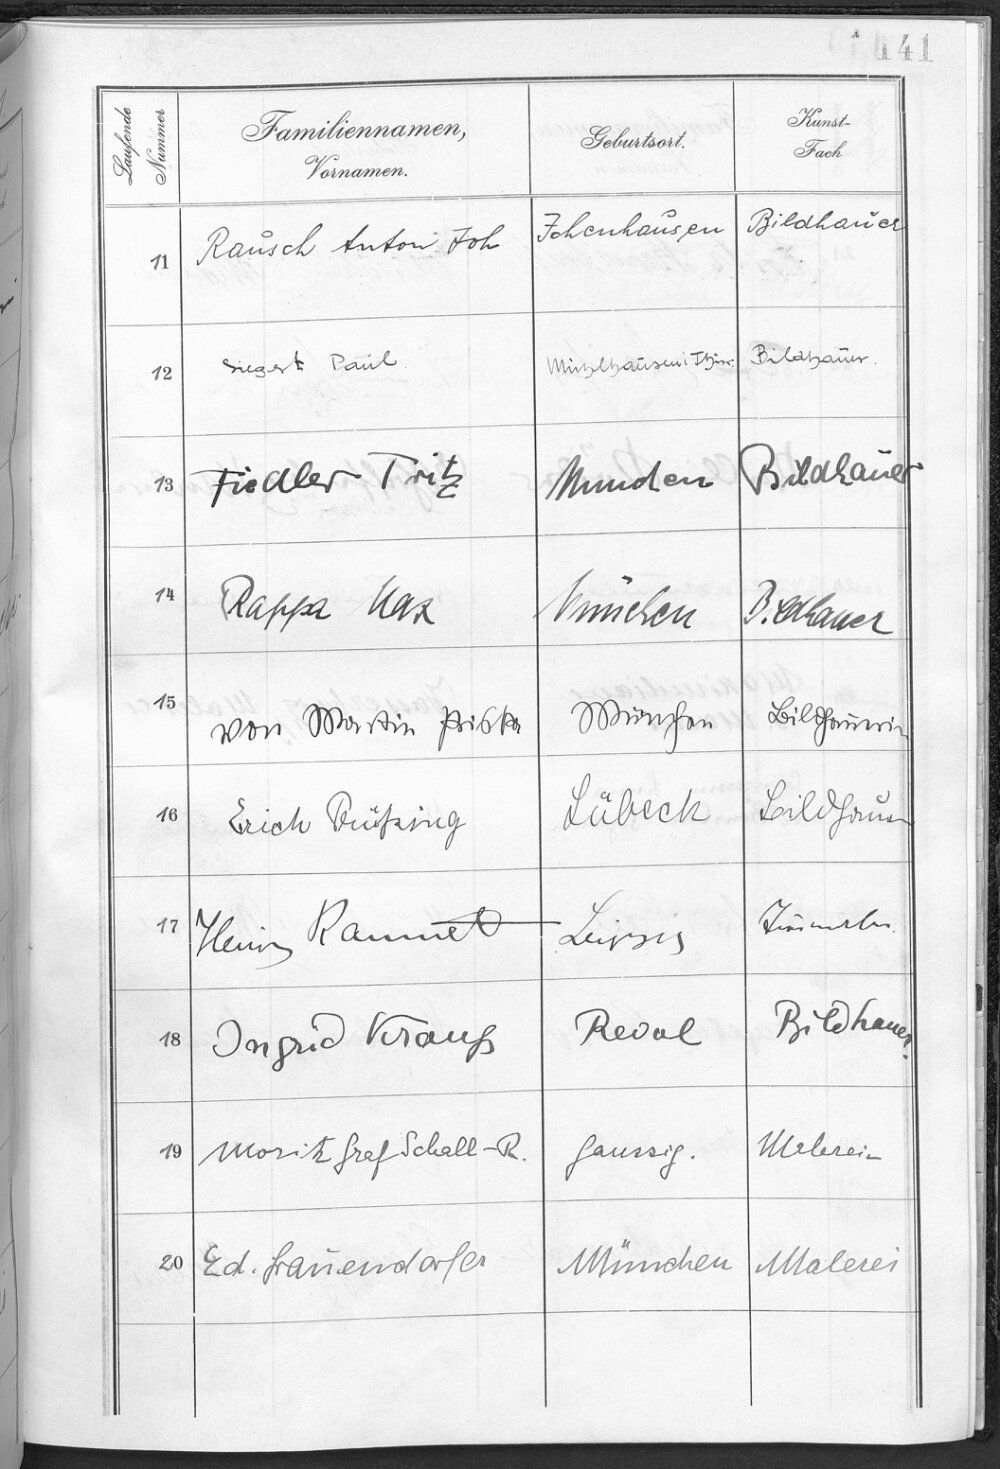 141
Laufende Nummer
Familiennamen, Vornamen.
Geburtsort.
Kunst-Fach
11 Rausch Anton Joh Ichenhausen Bildhauer
12 Siegert Paul Mühlhausen i Thür. Bildhauer.
13 Fiedler Fritz München Bildhauer
14 Rappa Max München Bildhauer
15 von Martin Priska München Bildhauerin
16 Erich Lübeck Bildhauer
17 Leipzig
18 Ingrid Krauß Reval Bildhauer.
19 Moritz Graf Schall-R. Gaussig. Malerei
20 Ed. Grauendorfer München Malerei